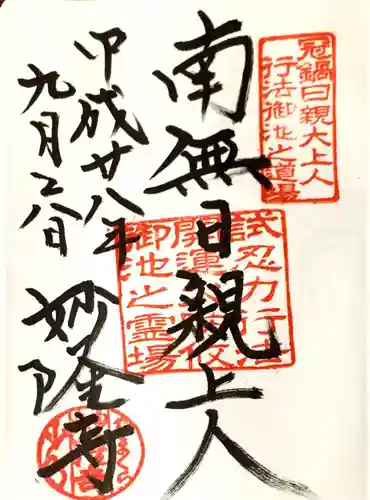 冠鍋日親大上人
行法御池之道場
南無日親上人
試忍力行法
御池之霊場
甲成廿八年
九月二八日
妙隆寺